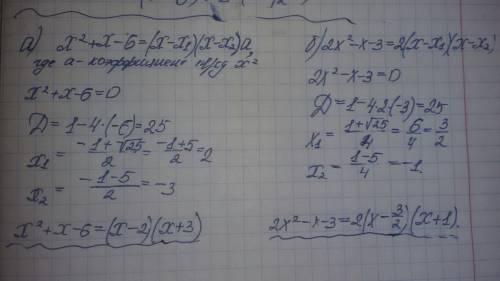 а) x²+x-6=(x-x₁)(x-x₂)a,
где a - коэффициент перед x²
x²+x-6=0
D=1-4·(-6)=25
x₁ = (-1+√25)/2 = (-1+5)/2 = 2
x₂ = (-1-5)/2 = -3
x²+x-6=(x-2)(x+3)
б) 2x²-x-3=2(x-x₁)(x-x₂)
2x²-x-3=0
D=1-4·2·(-3)=25
x₁ = (1+√25)/4 = 6/4 = 3/2
x₂ = (1-5)/4 = -1.
2x²-x-3=2(x-3/2)(x+1).